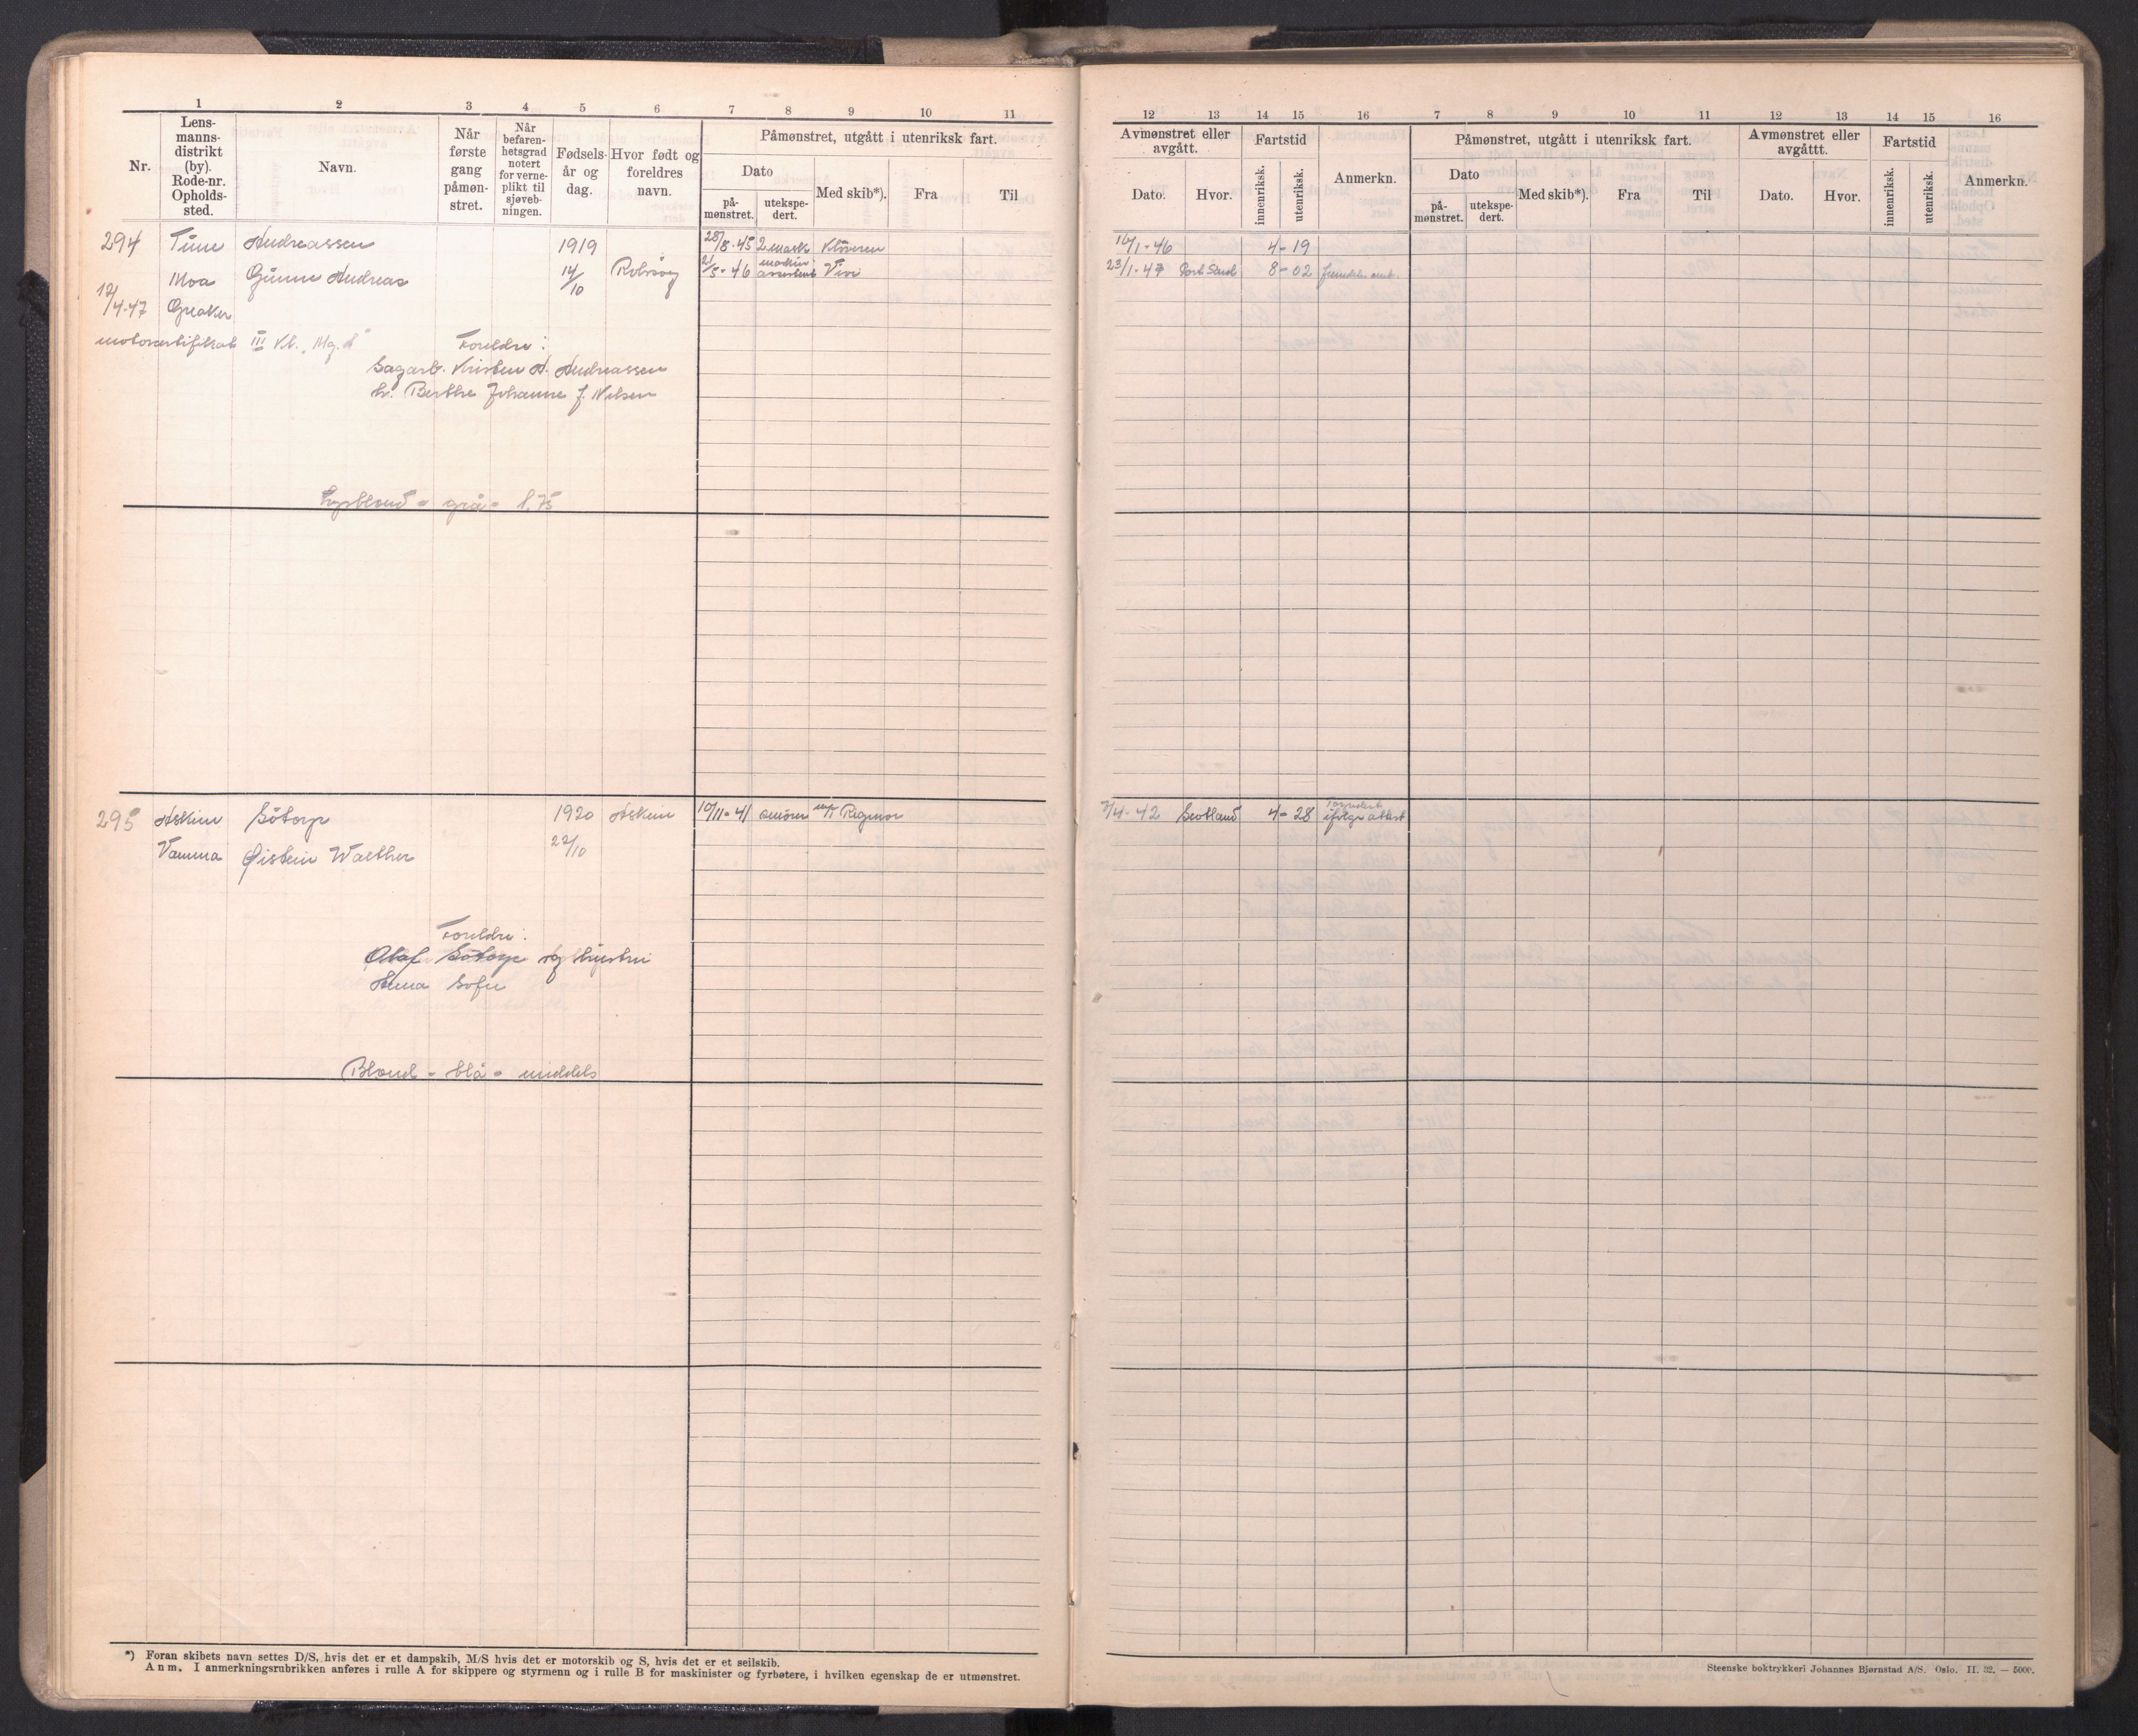 1 2 3 4 5 6 7 8 9 10 11
Nr.
Lens-
manns-
distrikt
(by).
Rode-nr.
Opholds-
sted.
Navn.
Når
første
gang
påmøn-
stret.
Når
befaren-
hetsgrad
notert
for verne-
plikt til
sjøveb-
ningen.
Fødsels-
år og
dag.
Hvor født og
foreldres
navn.
Påmønstret, utgått i utenriksk fart.
Dato
på-
mønstret.
utekspe-
dert.
Med skib*).
Fra
Til
294 Tune Andreassen 1919 28/8-45 2 mask Kløveren
Moa Gunnar Andreas 14/10 Rolvsøy 21/5-46 maskin assistent Vivi
12/4-47 Greaker
motorsertifikat III Kl. "Mg. A"
Foreldre:
Sagarb. Kristen A. Andreassen
h. Berthe Johanne f. Nilsen
Lysblond - grå - 1,75
295 Askim Søtorp 1920 Askim 10/11-41 Regnor
Vamma Øistein Walther 22/10
Foreldre:
Olaf Søtorp og hustru
Anna Sofie
Blond - blå - middels
*) Foran skibets navn settes D/S, hvis det er et dampskib, M/S hvis det er motorskib og S, hvis det er et seilskib.
Anm. I anmerkningsrubrikken anføres i rulle A for skippere og styrmenn og i rulle B for maskinister og fyrbøtere, i hvilken egenskap de er utmønstret.
12 13 14 15 16 7 8 9 10 11 12 13 14 15 16
Avmønstret eller
avgått.
Dato.
Hvor.
Fartstid
innenriksk.
utenriksk.
Anmerkn.
Påmønstret, utgått i utenriksk fart.
Dato
på-
mønstret.
utekspe-
dert.
Med skib*).
Fra
Til
Avmønstret eller
avgåttt.
Dato.
Hvor.
Fartstid
innenriksk.
utenriksk.
Anmerkn.
16/1-46 4-19
23/1-47 8-02
7/4-42 Scotland 4-28 ifølge attest
Steenske boktrykkeri Johannes Bjørnstad A/S. Oslo. II. 32. — 5000.